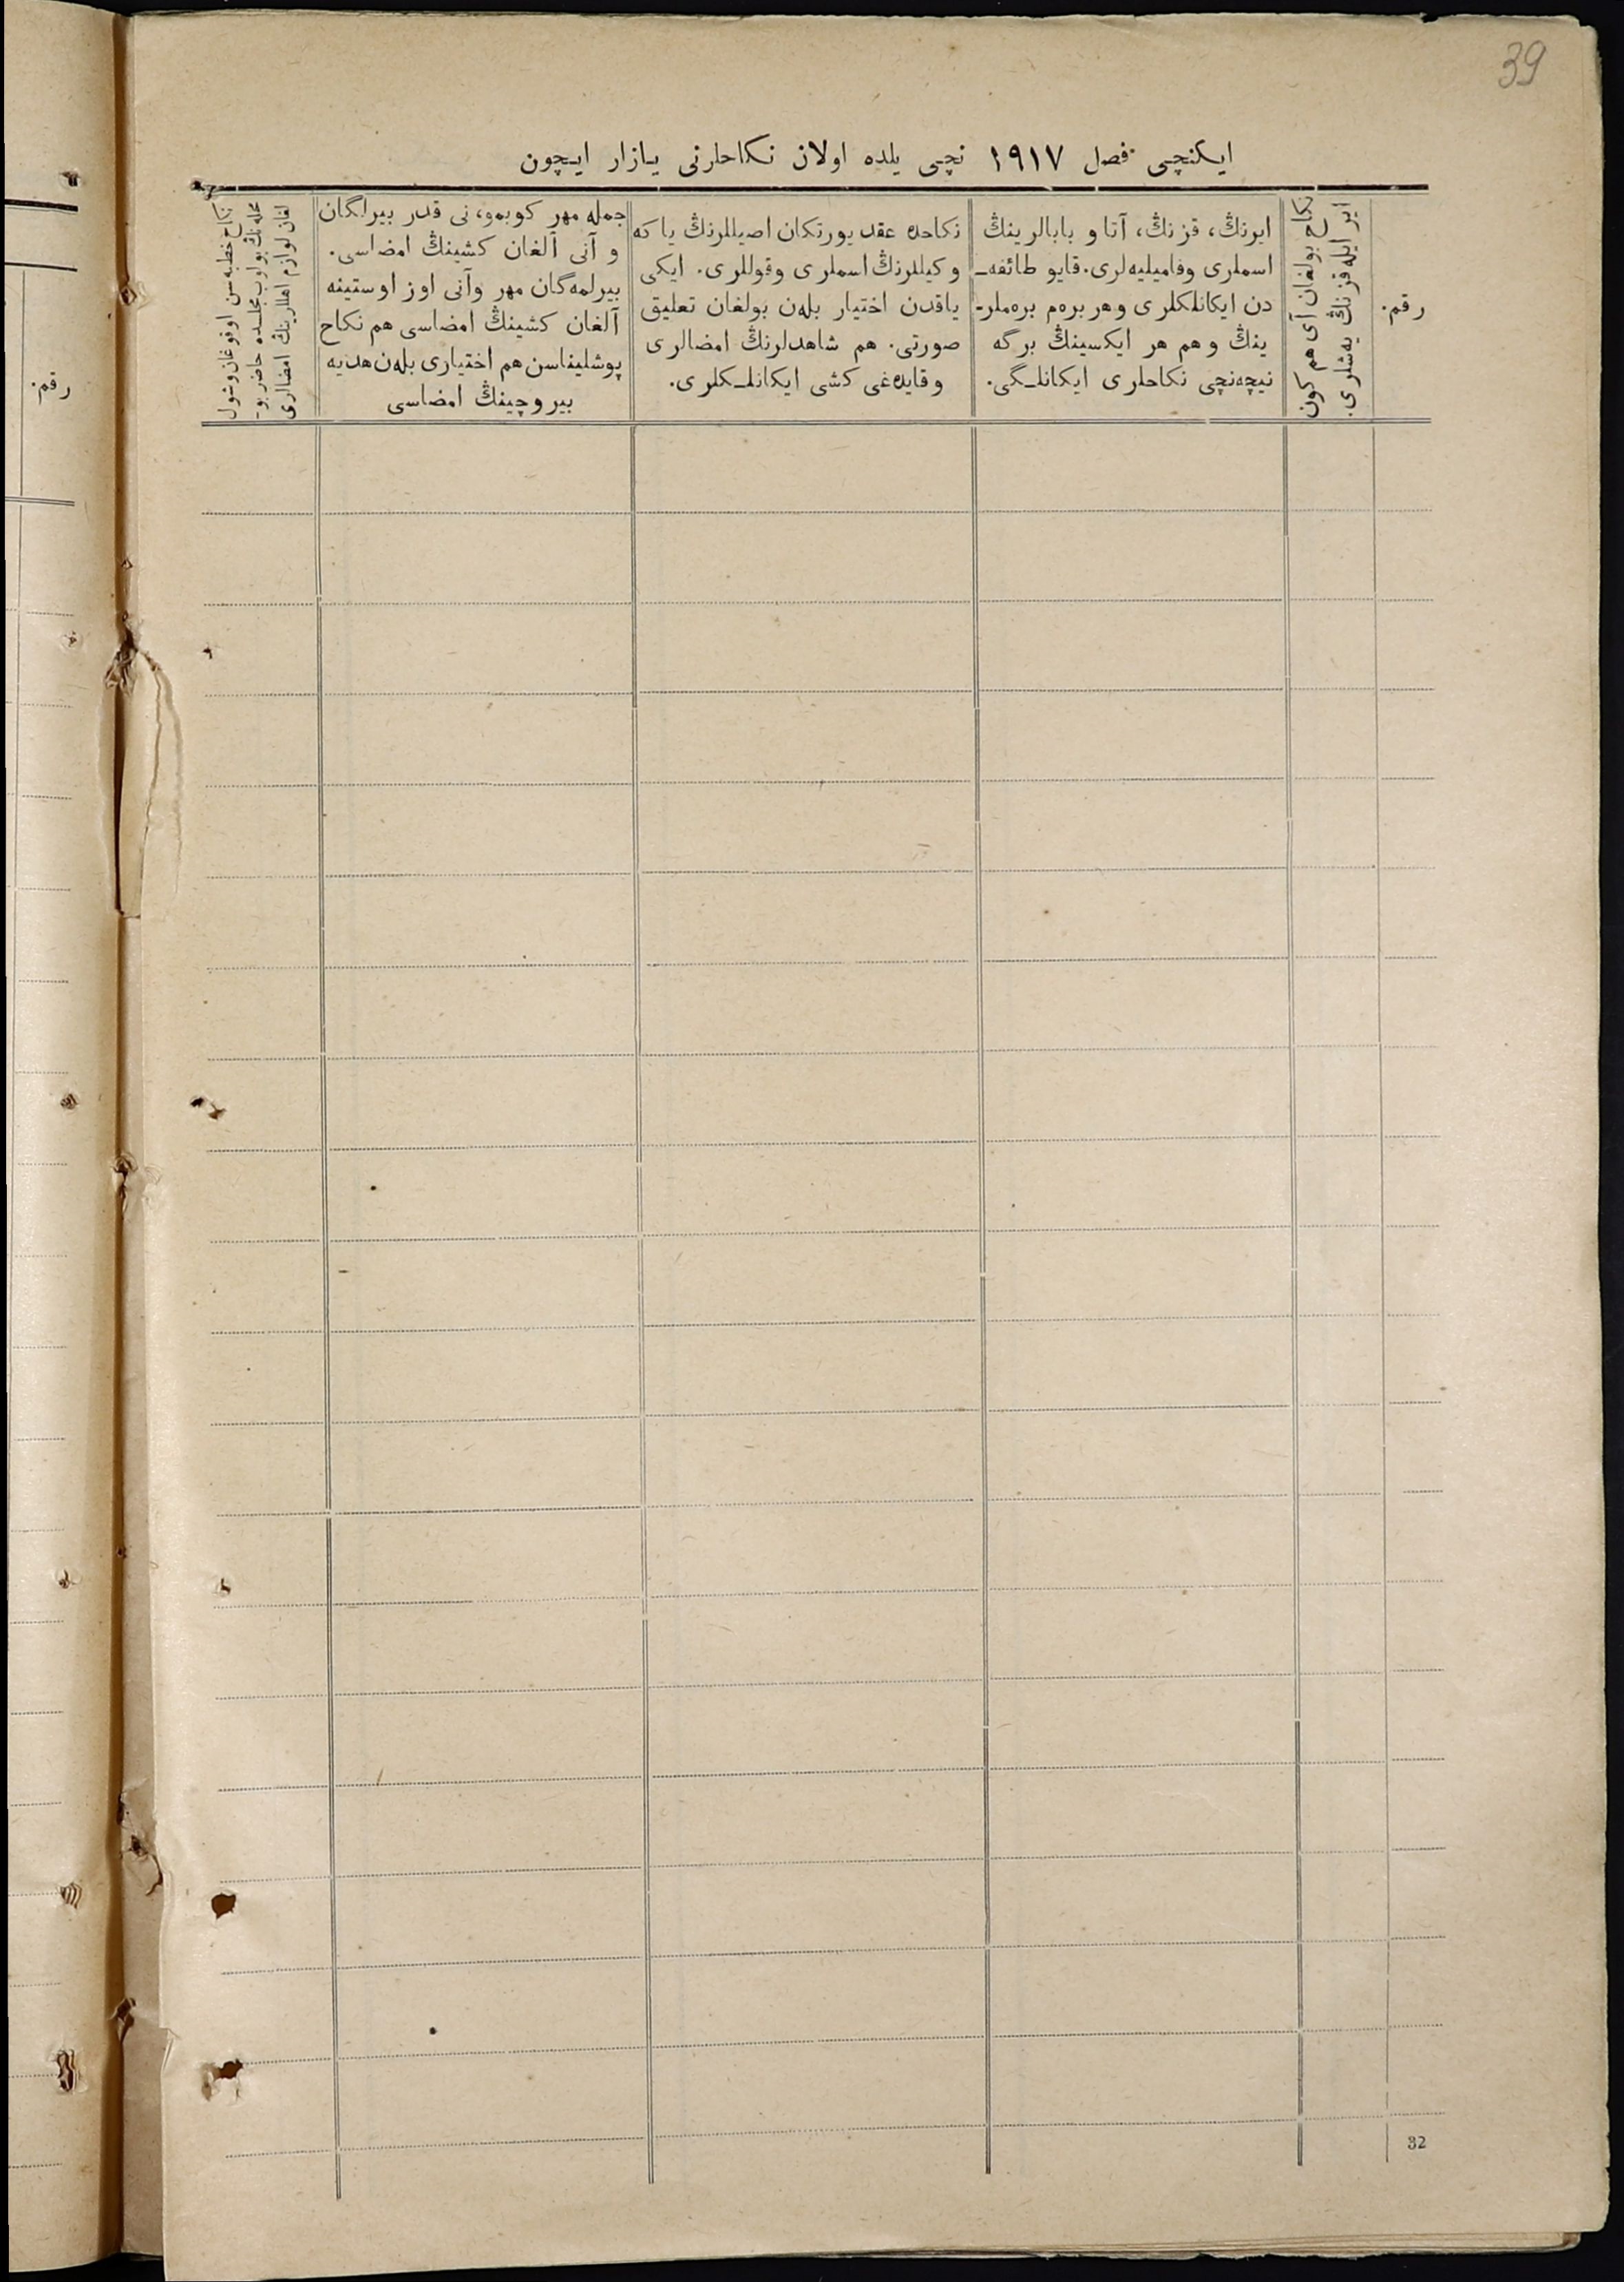 39
ایکنچی فصل ۱۹۱۷ نچی یلده اولان نکاحلرنی یازار ایچون
رقم.
نکاح بولغان آی هم کون
ایر ایله قزنڭ یه‌شلری.
ایرنڭ، قزنڭ، آتا و بابالرینڭ
اسملری وفامیلیه‌لری. قایو طائفه‌ـ
دن ایکانلکلری وهر بره‌م بره‌ملرـ
ینڭ وهم هر ایکسینڭ برگه
نیچه‌نچی نکاحلری ایکانلـگی.
نکاحده عقد یورتکان اصیللرنڭ یا که
وکیللرنڭ اسملری وقوللری. ایکی
یاقدن اختیار بله‌ن بولغان تعلیق
صورتی. هم شاهدلرنڭ امضالری
وقایده‌غی کشی ایکانلـکلری.
جمله مهر کوبمو، نی قدر بیرلگان
و آنی آلغان کشینڭ امضاسی.
بیرلمه‌گان مهر وآنی اوز اوستینه
آلغان کشینڭ امضاسی هم نکاح
پوشلیناسن هم اختیاری بله‌ن هدیه
بیروچینڭ امضاسی
نکاح خطبه‌سن اوقوغان وشول
محله‌نڭ بولوب مجلسده حاضر بوـ
لغان لوازم اهللرینڭ امضالری
رقم.
32